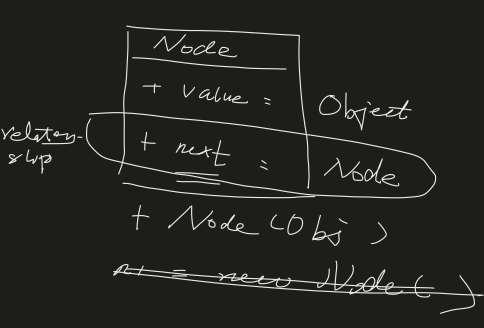 Node
+ value = Object
relation-
ship
+ next = Node
+ Node (Obj)
n1 = new Node ( )